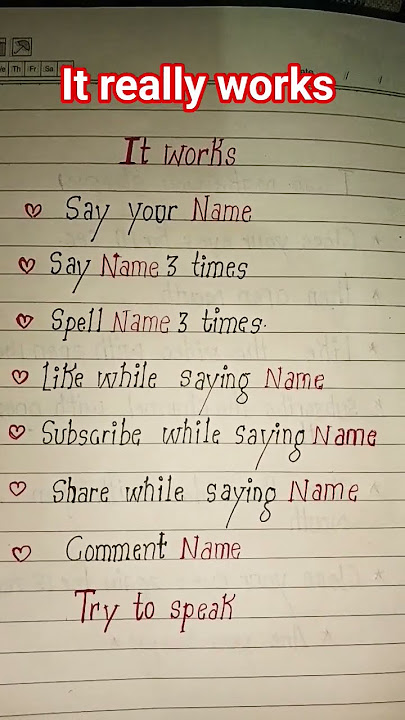 Th Fr Sa
It really works
It works
Say your Name
Say Name 3 times
Spell Name 3 times.
Like while saying Name
Subscribe while saying Name
Share while saying Name
Comment Name
Try to speak